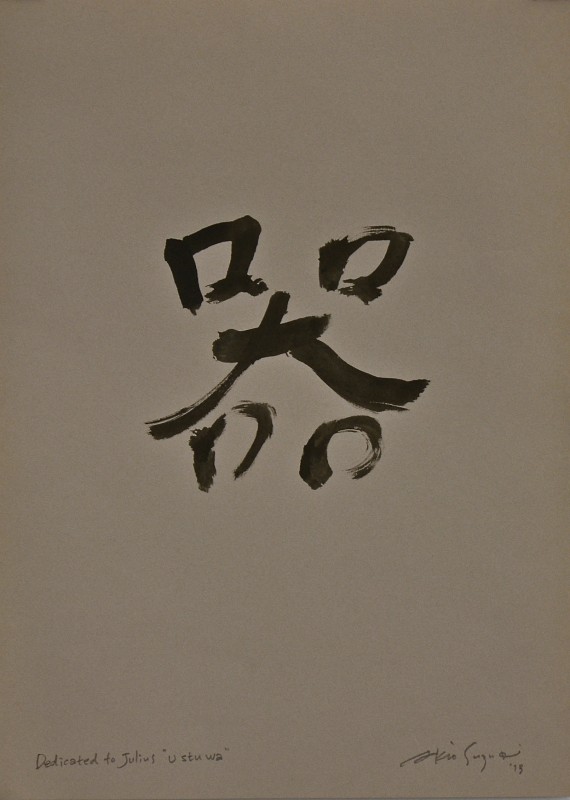 器
Dedicated to Julius "ustuwa"
Akio Suzuki '13